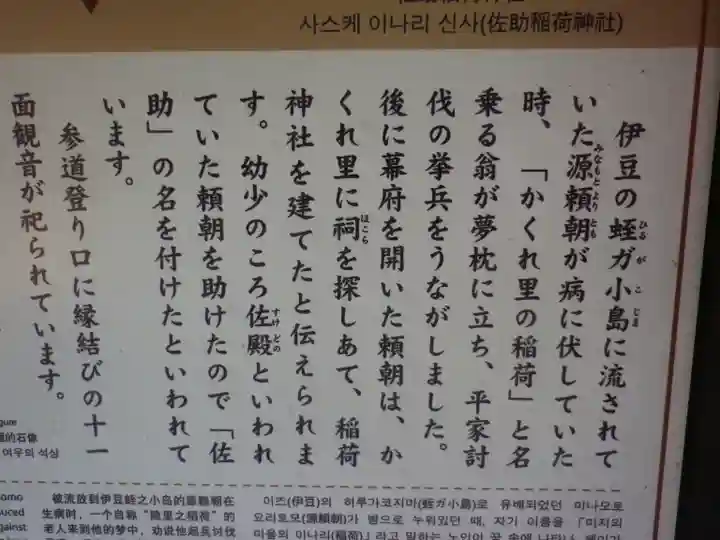 사스케 이나리 신사(佐助稲荷神社)
伊豆の蛭ガ小島に流されて
いた源頼朝が病に伏していた
時、「かくれ里の稲荷」と名
乗る翁が夢枕に立ち、平家討
伐の挙兵をうながしました。
後に幕府を開いた頼朝は、か
くれ里に祠を探しあて、稲荷
神社を建てたと伝えられま
す。幼少のころ佐殿といわれ
ていた頼朝を助けたので「佐
助」の名を付けたといわれて
います。
参道登り口に縁結びの十一
面観音が祀られています。
的石像
여우의 석상
被流放到伊豆蛭之小岛的源賴朝在
生病时，一个自称“隐里之稻荷”的
老人来到他的梦中，劝说他起兵讨伐
이즈(伊豆)의 히루가코지마(蛭ガ小島)로 유배되었던 미나모토
요리토모(源頼朝)가 병으로 누워있던 때, 자기 이름을 「미지의
마을의 이나리(稲荷)」라고 말하는 노인이 꿈 속에 나타나